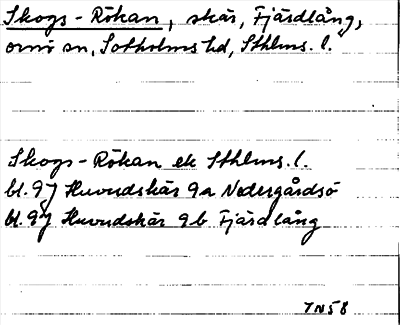 Skogs-Rökan, skär, Fjärdlång,
Ornö sn, Sotholms hd, Sthlms. l.
Skogs-Rökan ek Sthlms. l.
bl. 97 Huvudskär 9a Nedergårdsö
bl. 97 Huvudskär 9b Fjärdlång
7N58